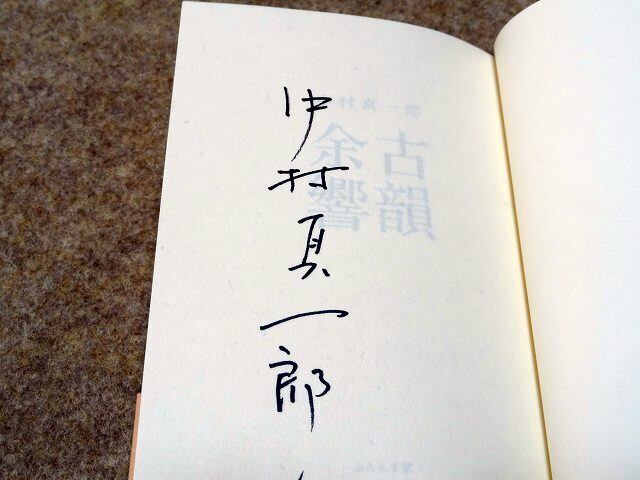 中村真一郎
村真一郎
古韻
余響
ふらんす堂